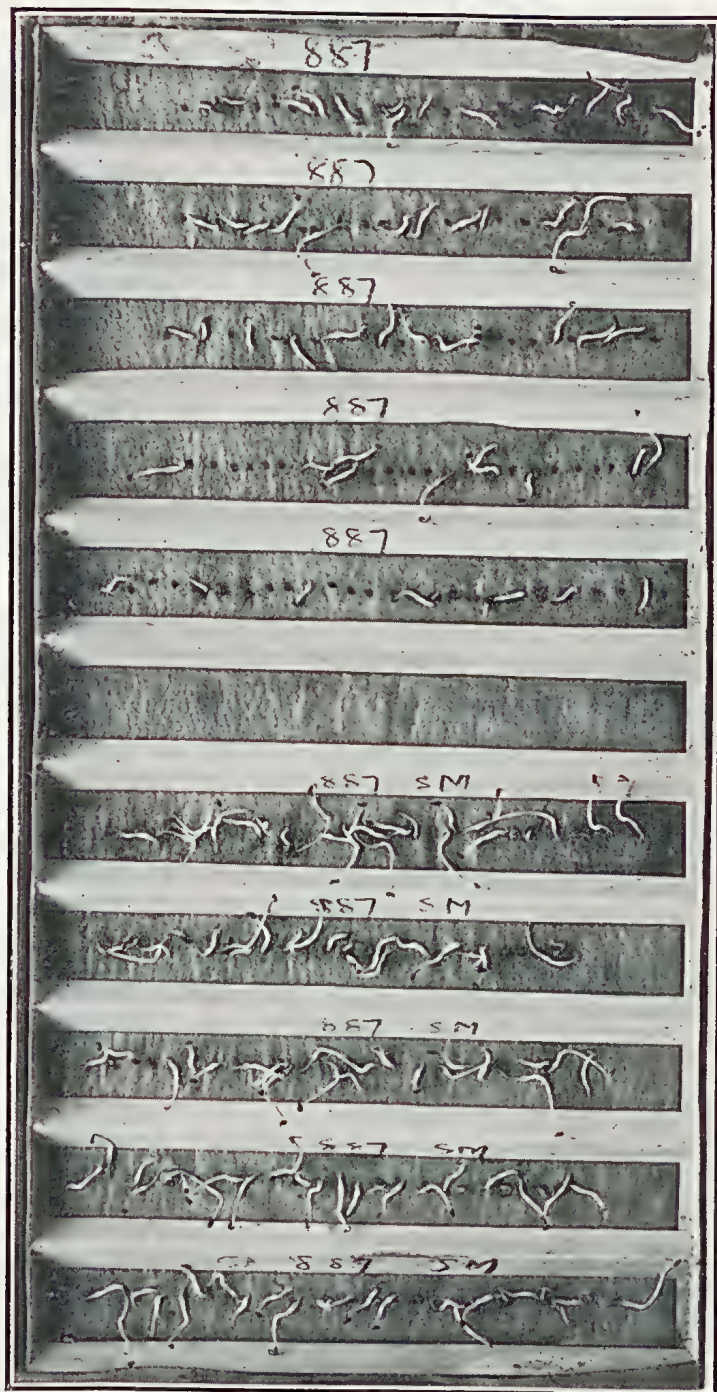 887
887
887
887
887
887 SM
887 SM
887 SM
887 SM
887 SM